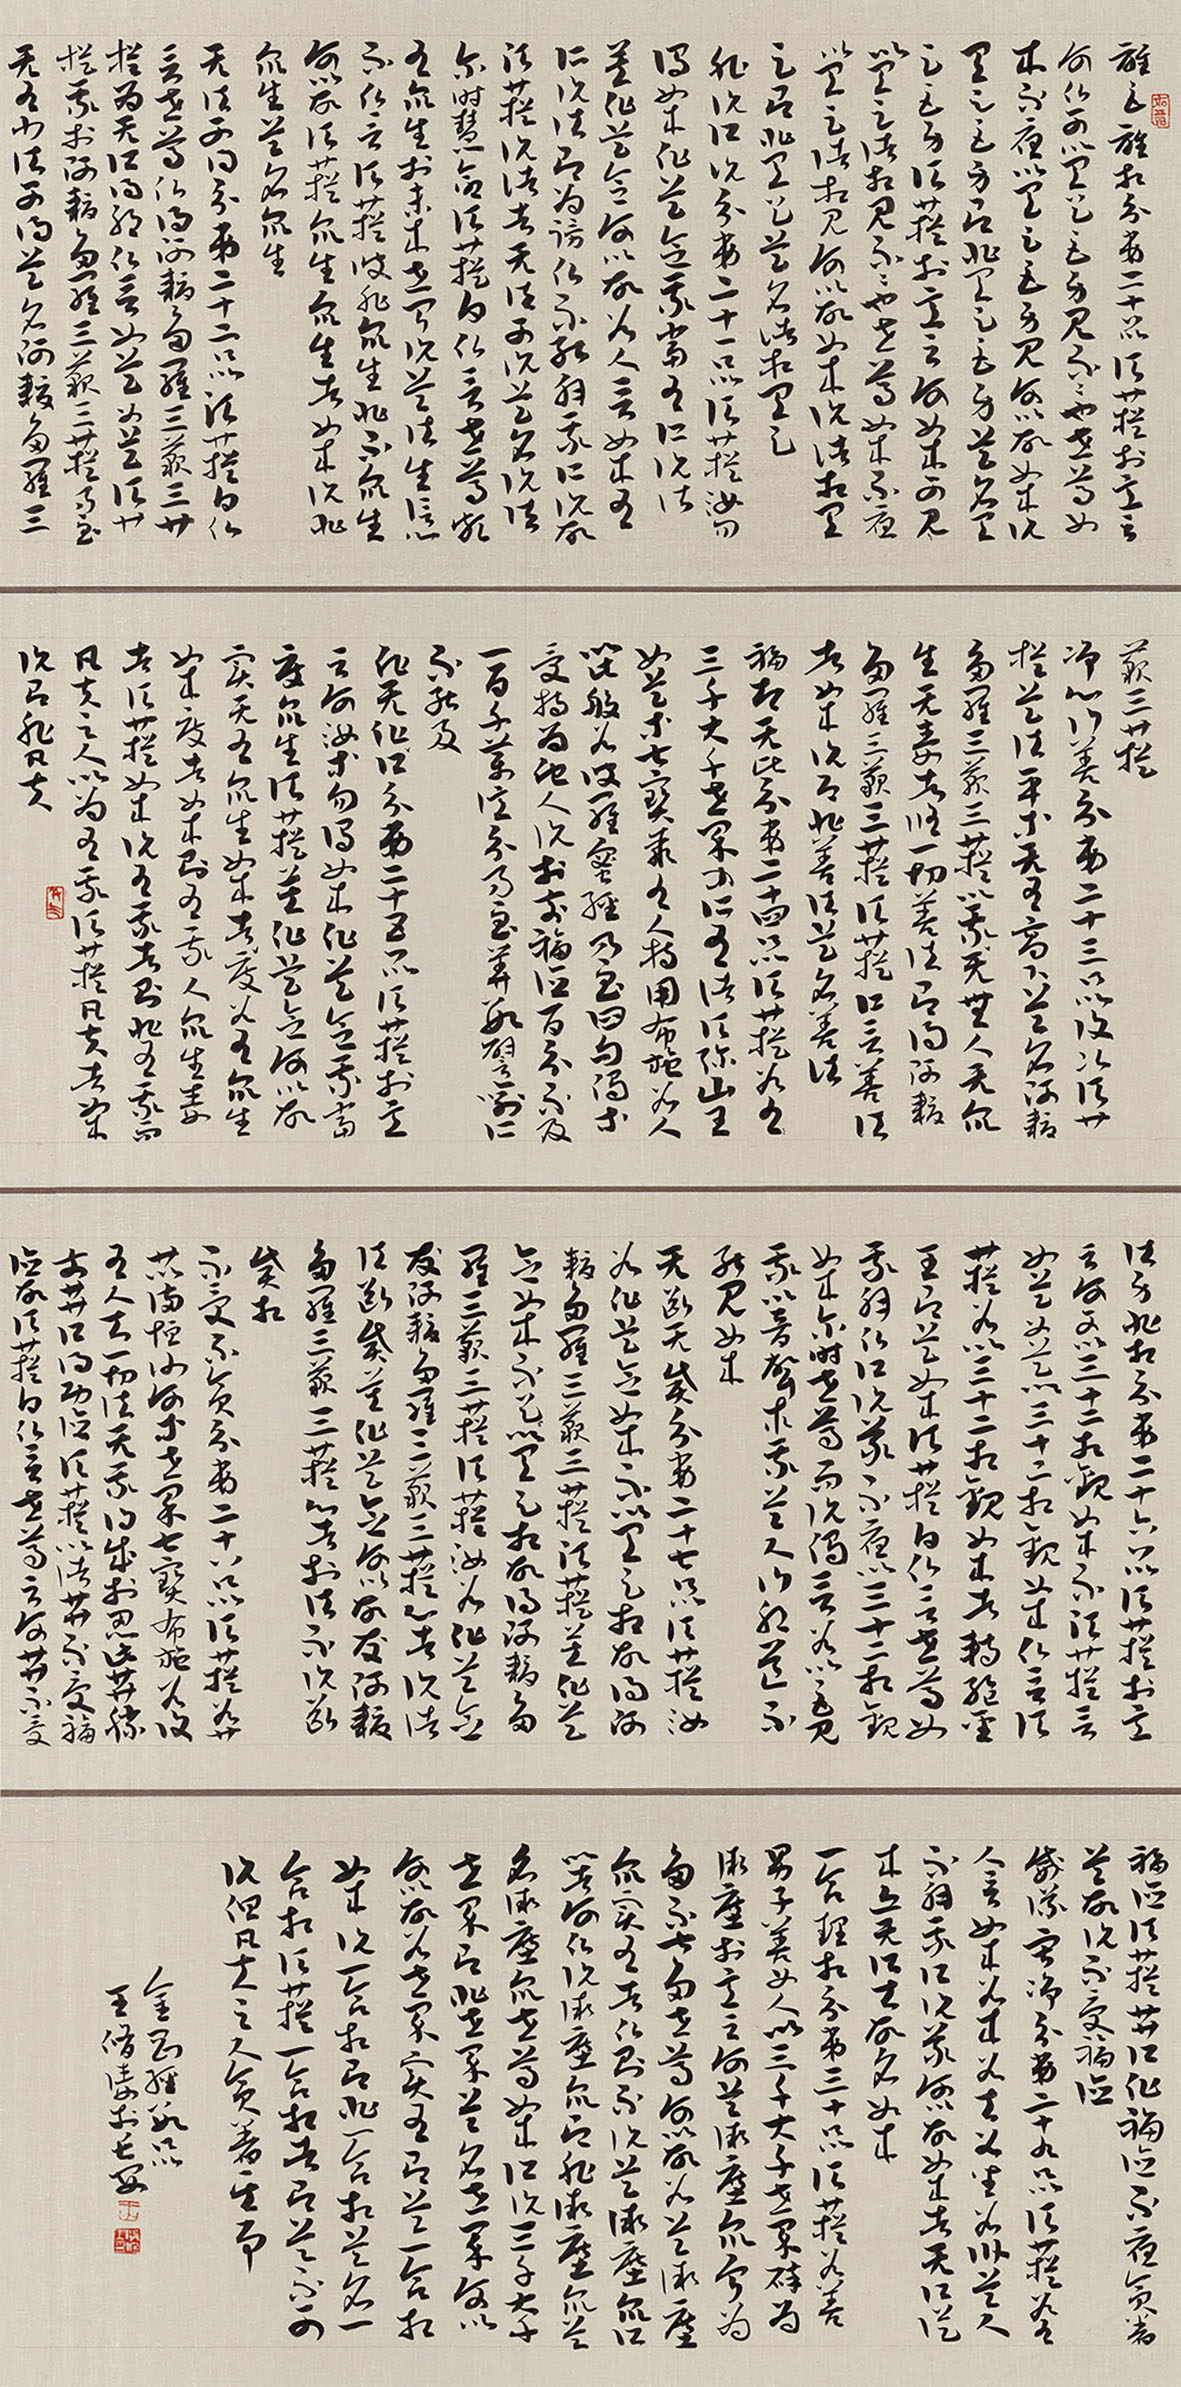 離色離相分第二十品須菩提於意云
何佛可以具足色身見不不也世尊如
來不應以具足色身見何以故如來說
具足色身即非具足色身是名具
足色身須菩提於意云何如來可見
以具足諸相見不不也世尊如來不應
以具足諸相見何以故如來說諸相具
足即非具足是名諸相具足
非說所說分第二十一品須菩提汝勿
謂如來作是念我當有所說法
莫作是念何以故若人言如來有
所說法即為謗佛不能解我所說故
須菩提說法者无法可說是名說法
尔時慧命須菩提白佛言世尊頗
有眾生於未來世聞說是法生信心
不佛言須菩提彼非眾生非不眾生
何以故須菩提眾生眾生者如來說非
眾生是名眾生
无法可得分第二十二品須菩提白佛
言世尊佛得阿耨多羅三藐三菩
提為无所得耶佛言如是如是須菩
提我於阿耨多羅三藐三菩提乃至
无有少法可得是名阿耨多羅三
藐三菩提
淨心行善分第二十三品復次須菩
提是法平等无有高下是名阿耨
多羅三藐三菩提以无我无人无眾
生无壽者修一切善法即得阿耨
多羅三藐三菩提須菩提所言善法
者如來說即非善法是名善法
福智无比分第二十四品須菩提若
三千大千世界中所有諸須弥山王
如是等七寶聚有人持用布施若人
以此般若波羅蜜經乃至四句偈等
受持為他人說於前福德百分不及
一百千萬億分乃至算數譬喻所
不能及
化无所化分第二十五品須菩提於意
云何汝等勿謂如來作是念我當
度眾生須菩提莫作是念何以故
實无有眾生如來者度若有眾生
如來度者如來則有我人眾生壽
者須菩提如來說有我者則非有我而
凡夫之人以為有我須菩提凡夫者如來
說即非凡夫
法身非相分第二十六品須菩提於意
云何可以三十二相觀如來不須菩提言
如是如是以三十二相觀如來佛言須
菩提若以三十二相觀如來者轉輪聖
王即是如來須菩提白佛言世尊如
我解佛所說義不應以三十二相觀
如來尔時世尊而說偈言若以色見
我以音聲求我是人行邪道不
能見如來
无斷无滅分第二十七品須菩提汝
若作是念如來不以具足相故得阿
耨多羅三藐三菩提須菩提莫作是
念如來不以具足相故得阿耨多
羅三藐三菩提須菩提汝若作是念
發阿耨多羅三藐三菩提心者說諸
法斷滅莫作是念何以故發阿耨
多羅三藐三菩提心者於法不說斷
滅相
不受不貪分第二十八品須菩提若菩
薩以滿恒河沙等世界七寶布施若復
有人知一切法无我得成於忍此菩薩勝
前菩薩所得功德須菩提以諸菩薩不受福
德故須菩提白佛言世尊云何菩薩不受
福德須菩提菩薩所作福德不應貪著
是故說不受福德
威儀寂淨分第二十九品須菩提若有
人言如來若來若去若坐若臥是人
不解我所說義何以故如來者无所從
來亦无所去故名如來
一合理相分第三十品須菩提若善
男子善女人以三千大千世界碎為
微塵於意云何是微塵眾寧為
多不甚多世尊何以故若是微塵
眾實有者佛則不說是微塵眾所
以者何佛說微塵眾即非微塵眾是
名微塵眾世尊如來所說三千大千
世界即非世界是名世界何以
何以故若世界實有即是一合相
如來說一合相即非一合相是名一
合相須菩提一合相者即是不可
說但凡夫之人貪著其事
金剛經數品